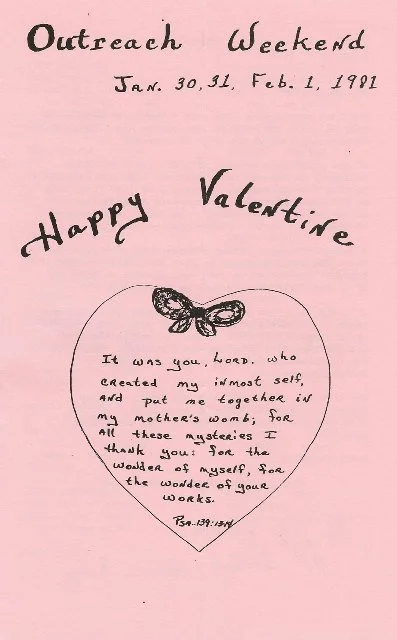 Outreach Weekend
Jan. 30, 31, Feb. 1, 1981
Happy Valentine
It was you, Lord, who
created my inmost self,
and put me together in
my mother's womb; for
all these mysteries I
thank you: for the
wonder of myself, for
the wonder of your
works.
Psa. 139:13-14